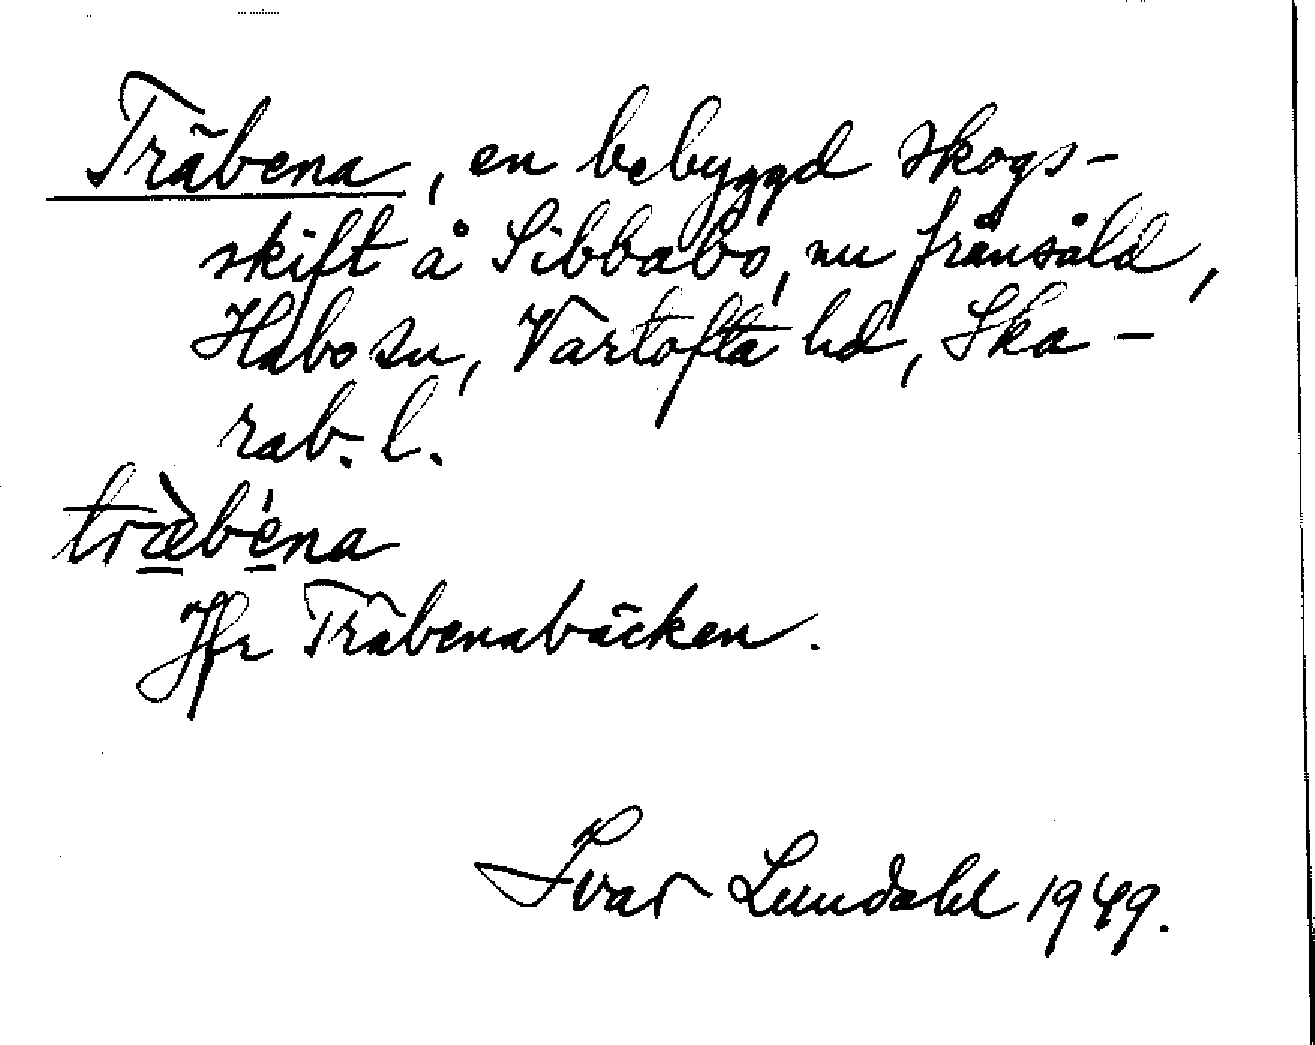 Träbena, en bebyggd skogs-
skift å Sibbabo, nu frånsåld,
Habo sn, Vartofta hd, Ska-
rab. l.
træ̀béna
Jfr Träbenabäcken.
Ivar Lundahl 1949.